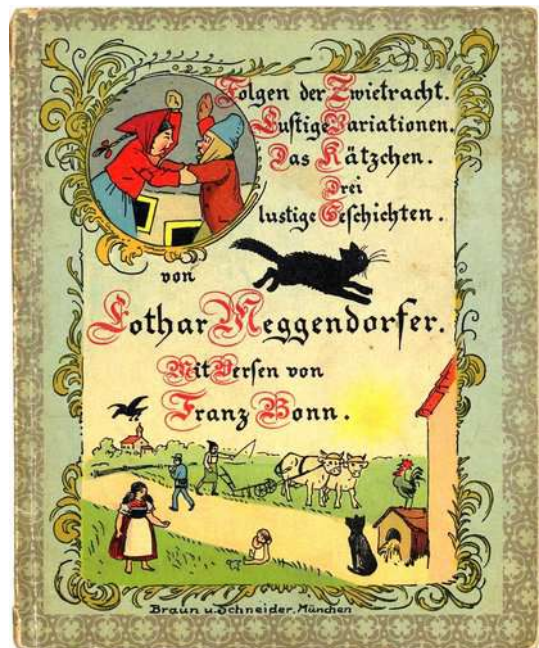 Folgen der Zwietracht.
Lustige Variationen.
Das Kätzchen.
Drei
lustige Geschichten.
von
Lothar Meggendorfer.
Mit Versen von
Franz Bonn.
Braun u. Schneider, München